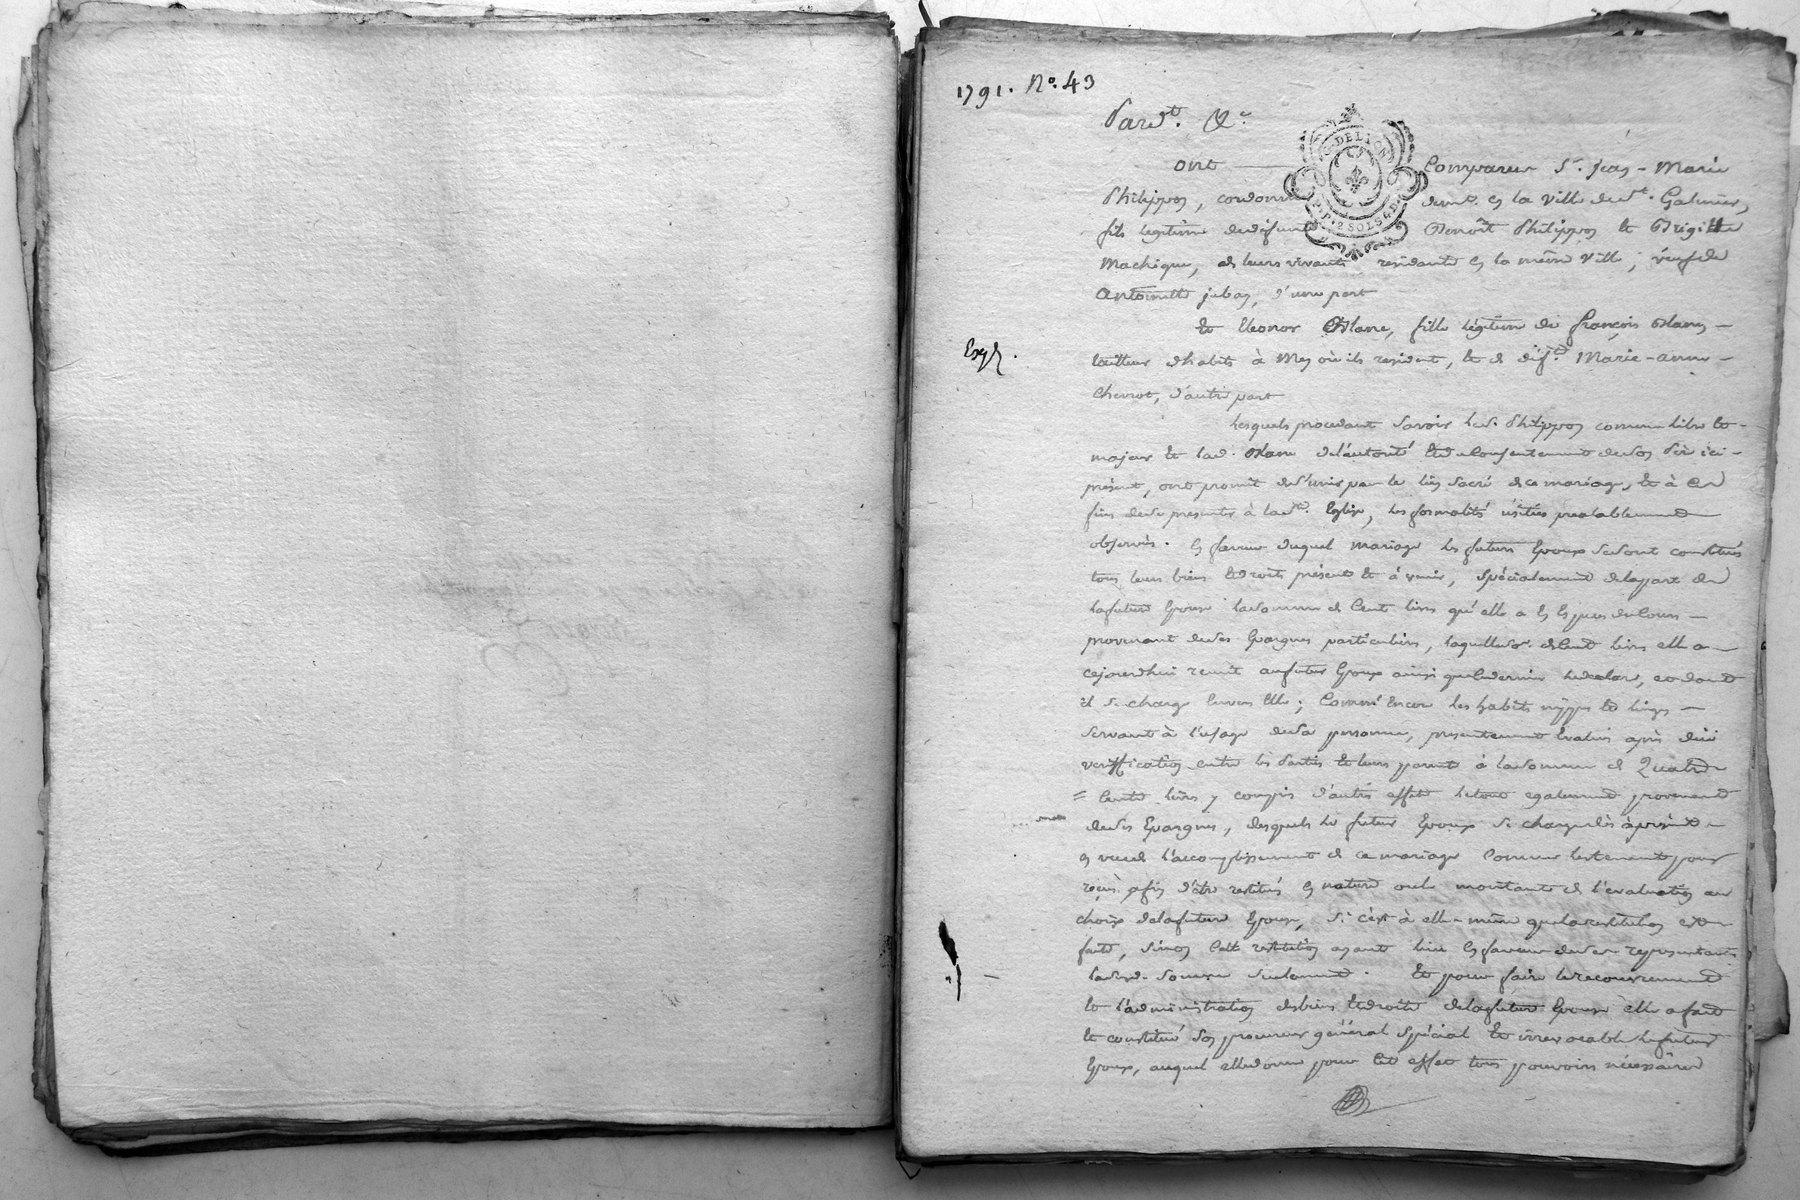 1791. N.º 43
Pard.t &.ª
ont Comparus S.r jean-Marie
G. DE LYON
P.P. 2 SOLS 4 D.
Philippon, cordonnier demt. en la ville de St. Galmier,
fils légitime de défunts Benoît Philippon et Brigitte
Machique, de leurs vivants résidants en la même ville; veuf de
Antoinette jaban, d'une part
Et Eleonor Blanc, fille légitime de françois Blanc
tailleur d'habits à où ils resident, et de déf.te Marie-anne
Chevrot, d'autre part
Lesquels procedant savoir led. Philippon comme libre et
majeur et lad. Blanc de l'autorité et du consentement de son Père ici
présent, ont promit de s'unir par le lien sacré de ce mariage, et à ces
fins de se presenter à la Ste. Eglise, les formalités usitées prealablement
observées. En faveur duquel mariage les futurs Epoux se sont constitués
tous leurs biens et droits présents et à venir, spécialement de la part de
la future Epouse la somme de Cent livres qu'elle a en Especes de Cours
provenant de ses Epargnes particulieres, laquelle so.e de Cent livres elle a
cejourd'hui remit au futur Epoux ainsi que ce dernier le declare, et dont
il se charge Envers Elle; Comme Encore les habits nippes et linges
servant à l'usage de sa personne, presentement Evalués après due
verification entre les Parties et leurs parents à la somme de Quatre
= Cents livres y compris d'autres effets le tout egalement provenant
de ses Epargnes, desquels le futur Epoux se charge dès à présent
en vue de l'accomplissement de ce mariage Comme les tenant pour
reçus, afin d'être restitués en nature ou le montant de l'evaluation au
choix de la future Epouse, si c'est à elle-même que la restitution est
faite, sinon Cette restitution ayant lieu en faveur de ses representants
lad. somme seulement. Et pour faire le recouvrement
et l'administration des biens et droits de la future Epouse elle a fait
et constitué son procureur général spécial et irrevocable le futur
Epoux, auquel elle donne pour Cet effet tous pouvoirs nécessaires